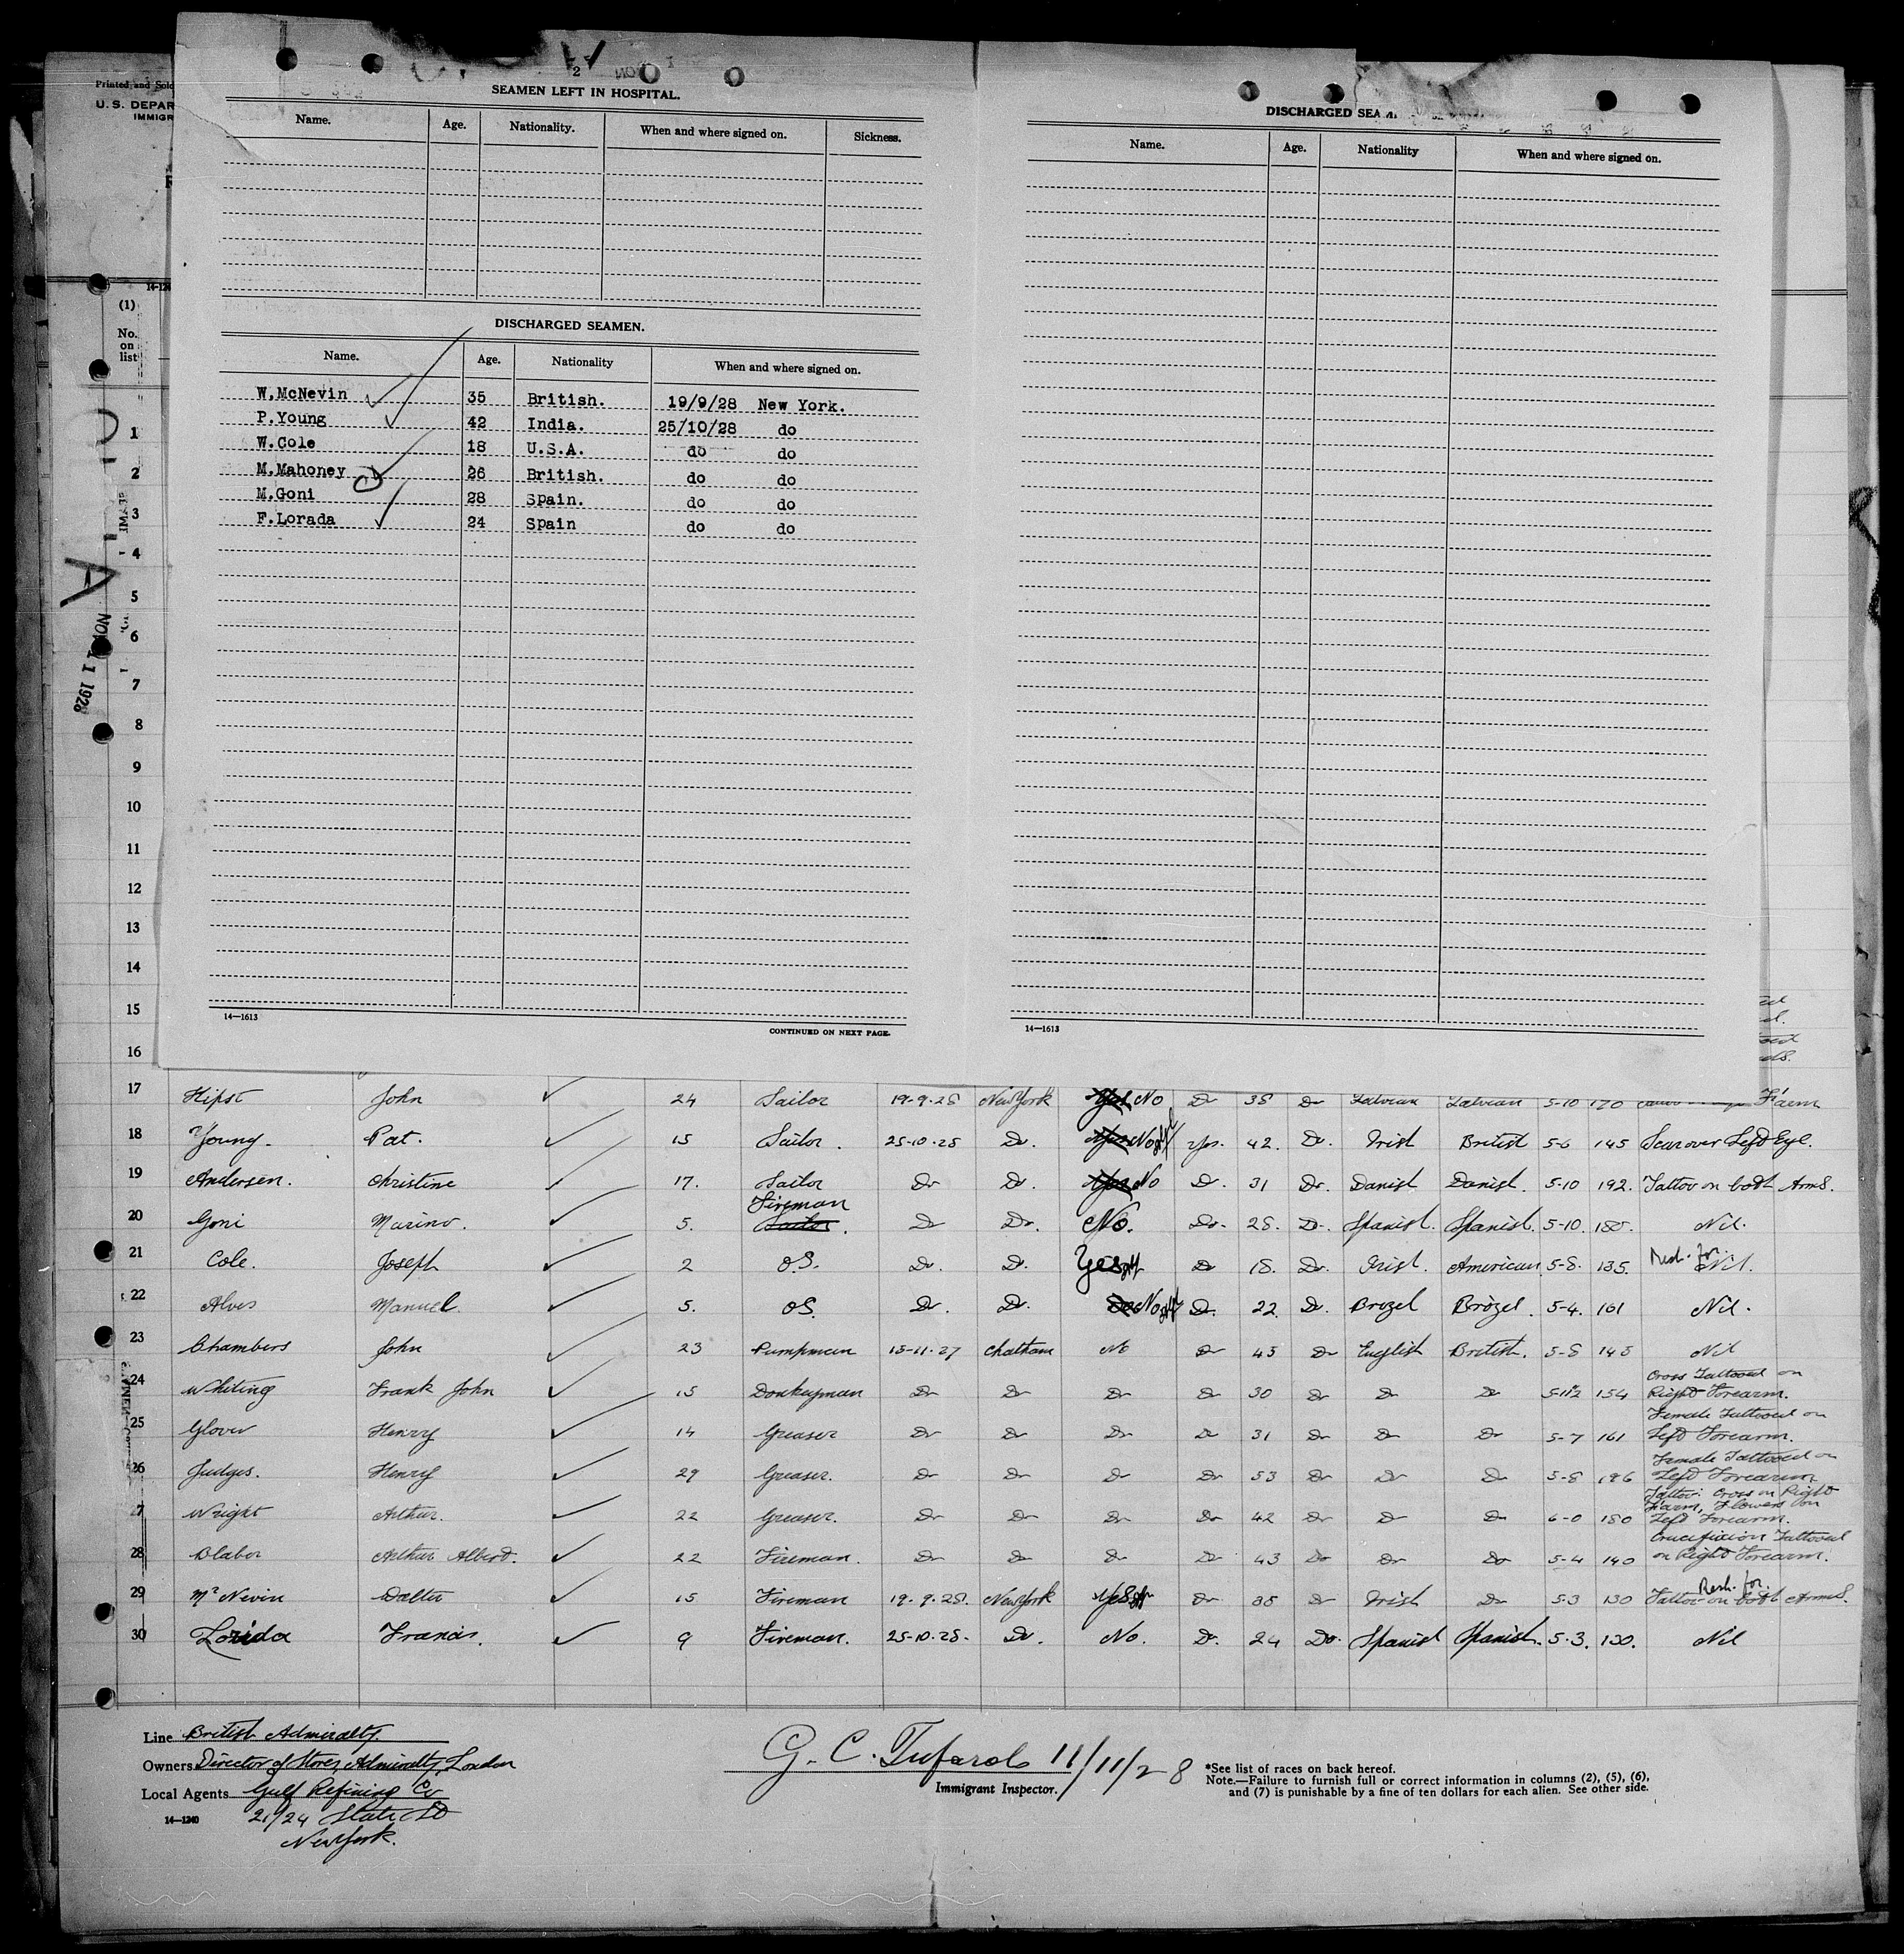 Printed and Sold
U. S. DEPAR
IMMIGR
14-124
(1)
No. on list
NOV 11 1928
2
SEAMEN LEFT IN HOSPITAL.
Name. Age. Nationality. When and where signed on. Sickness.
DISCHARGED SEAMEN.
Name. Age. Nationality When and where signed on.
W.McNevin 35 British. 19/9/28 New York.
P.Young 42 India. 25/10/28 do
W.Cole 18 U.S.A. do do
M.Mahoney 26 British. do do
M.Goni 28 Spain. do do
F.Lorada 24 Spain do do
14—1613
CONTINUED ON NEXT PAGE.
DISCHARGED SEA
Name. Age. Nationality When and where signed on.
14—1613
1
2
3
4
5
6
7
8
9
10
11
12
13
14
15
16
17 Hipst John 24 Sailor 19-9-28 New York Yes No Do 38 Do Latvian Latvian 5-10 170 F'arm
18 Young. Pat. 15 Sailor. 25-10-28 Do. No Yes. 42. Do. Irish British 5-6 145 Scar over Left Eye.
19 Andersen. Christine 17. Sailor Do Do. Yes No Do. 31 Do. Danish Danish. 5-10 192. Tattoo on both Arms.
20 Goni Marino. 5. Fireman Sailor. Do Do. No. Do. 28. Do. Spanish. Spanish. 5-10. Nil.
21 Cole. Joseph 2 O.S. Do. Do. Yes Do 18. Do. Irish. American 5-8. 135. Nil.
22 Alves Manuel. 5. OS. Do. Do. Do No Do. 22 Do. Brazel Brazel. 5-4. 161 Nil.
23 Chambers John 23 Pumpman 15-11-27 Chatham No Do 45 Do English British. 5-8 145 Nil
24 Whiting Frank John 15 Donkeyman Do Do Do Do 30 Do Do Do 5-11½ 154 Cross Tattooed on Right Forearm.
25 Glover Henry 14 Greaser Do Do Do Do 31 Do Do Do 5-7 161 Female Tattooed on Left Forearm.
26 Judges. Henry 29 Greaser. Do Do Do Do 53 Do Do Do 5-8 196 Female Tattooed on Left Forearm.
27 Wright Arthur. 22 Greaser. Do Do Do Do 42 Do Do Do 6-0 180 Tattoo: Cross on Right F'arm, Flowers on Left Forearm.
28 Blabor Arthur Albert. 22 Fireman. Do Do Do Do 43 Do Do Do 5-4 140 Crucifixion Tattooed on Right Forearm.
29 Mc Nevin Walter 15 Fireman 19-9-28. New York Yes Do 35 Do Irish Do 5-3 130 Tattoo on both Arms.
30 Lorida Francis. 9 Fireman. 25-10-28. Do. No. Do. 24 Do. Spanish Spanish. 5-3. 130. Nil
Line British Admiralty.
Owners Director of Stores, Admiralty, London
Local Agents Gulf Refining Co
21/24 State St
New York.
14—1240
G. C. Tufarolo 11/11/28
Immigrant Inspector.
*See list of races on back hereof.
Note.—Failure to furnish full or correct information in columns (2), (5), (6),
and (7) is punishable by a fine of ten dollars for each alien. See other side.